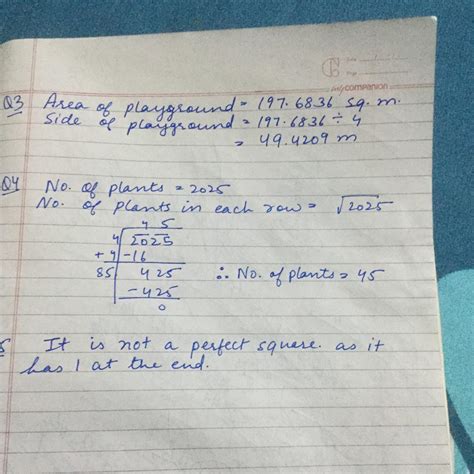 companion
Q3 Area of playground = 197.6836 sq. m.
Side of playground = 197.6836 ÷ 4
= 49.4209 m
Q4 No. of plants = 2025
No. of plants in each row = √2025
4 5
4 2025
+4 -16
85 425 ∴ No. of plants = 45
-425
0
5 It is not a perfect square. as it
has 1 at the end.